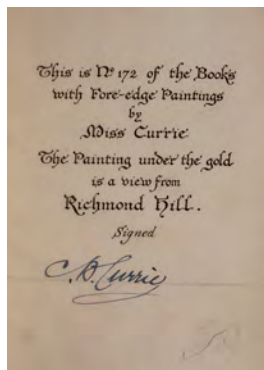 This is Nº 172 of the Books
with Fore-edge Paintings
by
Miss Currie
The Painting under the gold
is a view from
Richmond Hill.
Signed
C.B. Currie